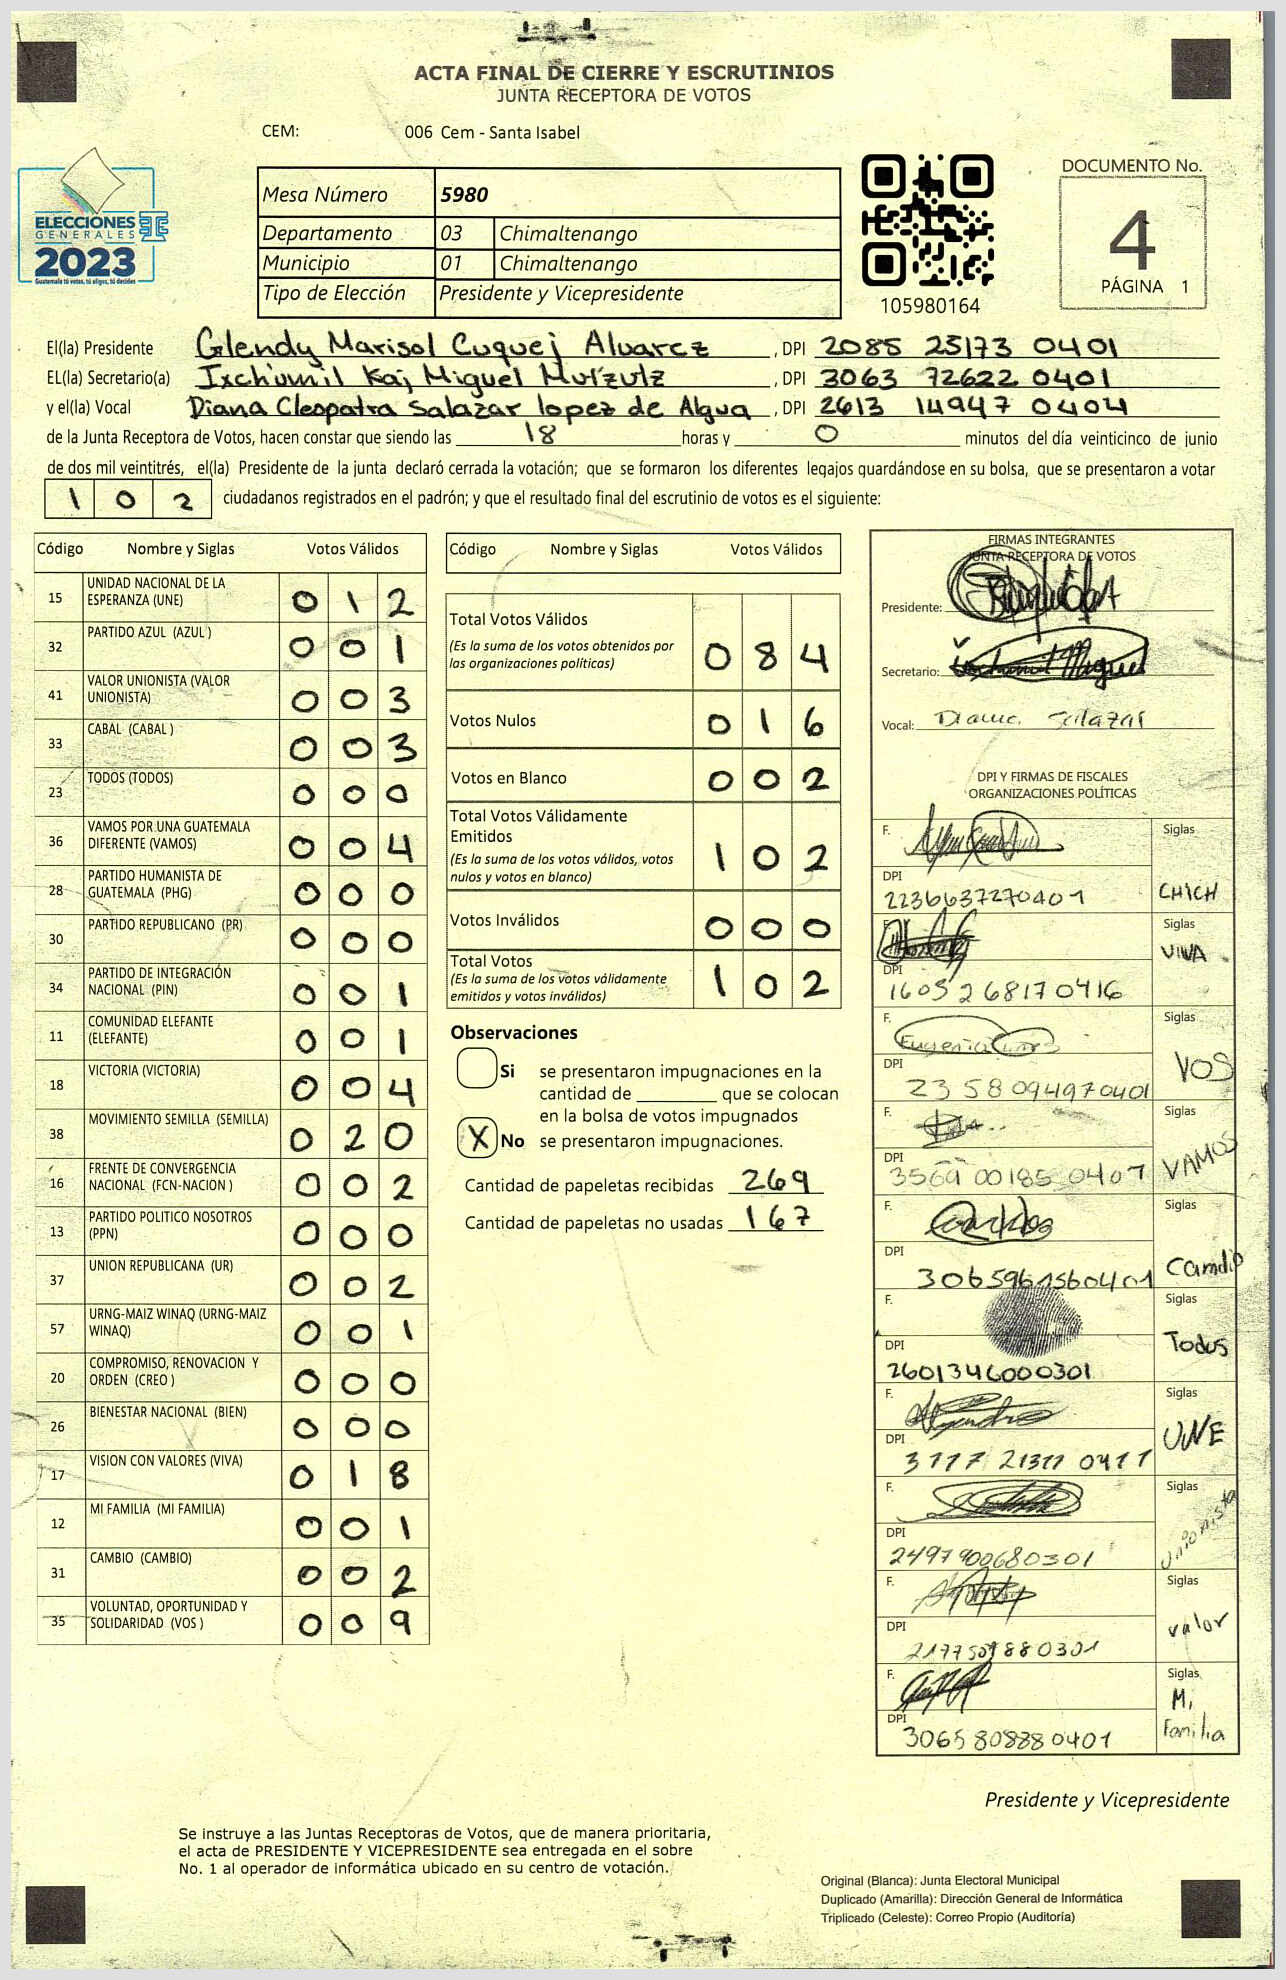 ACTA FINAL DE CIERRE Y ESCRUTINIOS
JUNTA RECEPTORA DE VOTOS
CEM: 006 Cem - Santa Isabel
ELECCIONES
GENERALES
2023
Guatemala tú votas, tú eliges, tú decides
Mesa Número 5980
Departamento 03 Chimaltenango
Municipio 01 Chimaltenango
Tipo de Elección Presidente y Vicepresidente
105980164
DOCUMENTO No.
4
PÁGINA 1
El(la) Presidente Glendy Marisol Cuquej Alvarez , DPI 2085 25173 0401
EL(la) Secretario(a) Ixch'umil Kaj Miguel Mutzutz , DPI 3063 72622 0401
y el(la) Vocal Diana Cleopatra Salazar lopez de Algua , DPI 2613 14947 0404
de la Junta Receptora de Votos, hacen constar que siendo las 18 horas y 0 minutos del día veinticinco de junio
de dos mil veintitrés, el(la) Presidente de la junta declaró cerrada la votación; que se formaron los diferentes legajos guardándose en su bolsa, que se presentaron a votar
1 0 2 ciudadanos registrados en el padrón; y que el resultado final del escrutinio de votos es el siguiente:
Código Nombre y Siglas Votos Válidos
15 UNIDAD NACIONAL DE LA ESPERANZA (UNE) 0 1 2
32 PARTIDO AZUL (AZUL ) 0 0 1
41 VALOR UNIONISTA (VALOR UNIONISTA) 0 0 3
33 CABAL (CABAL ) 0 0 3
23 TODOS (TODOS) 0 0 0
36 VAMOS POR UNA GUATEMALA DIFERENTE (VAMOS) 0 0 4
28 PARTIDO HUMANISTA DE GUATEMALA (PHG) 0 0 0
30 PARTIDO REPUBLICANO (PR) 0 0 0
34 PARTIDO DE INTEGRACIÓN NACIONAL (PIN) 0 0 1
11 COMUNIDAD ELEFANTE (ELEFANTE) 0 0 1
18 VICTORIA (VICTORIA) 0 0 4
38 MOVIMIENTO SEMILLA (SEMILLA) 0 2 0
16 FRENTE DE CONVERGENCIA NACIONAL (FCN-NACION ) 0 0 2
13 PARTIDO POLITICO NOSOTROS (PPN) 0 0 0
37 UNION REPUBLICANA (UR) 0 0 2
57 URNG-MAIZ WINAQ (URNG-MAIZ WINAQ) 0 0 1
20 COMPROMISO, RENOVACION Y ORDEN (CREO ) 0 0 0
26 BIENESTAR NACIONAL (BIEN) 0 0 0
17 VISION CON VALORES (VIVA) 0 1 8
12 MI FAMILIA (MI FAMILIA) 0 0 1
31 CAMBIO (CAMBIO) 0 0 2
35 VOLUNTAD, OPORTUNIDAD Y SOLIDARIDAD (VOS ) 0 0 9
Código Nombre y Siglas Votos Válidos
Total Votos Válidos
(Es la suma de los votos obtenidos por las organizaciones políticas) 0 8 4
Votos Nulos 0 1 6
Votos en Blanco 0 0 2
Total Votos Válidamente Emitidos
(Es la suma de los votos válidos, votos nulos y votos en blanco) 1 0 2
Votos Inválidos 0 0 0
Total Votos
(Es la suma de los votos válidamente emitidos y votos inválidos) 1 0 2
Observaciones
Si se presentaron impugnaciones en la
cantidad de ________ que se colocan
en la bolsa de votos impugnados
X No se presentaron impugnaciones.
Cantidad de papeletas recibidas 269
Cantidad de papeletas no usadas 167
FIRMAS INTEGRANTES
JUNTA RECEPTORA DE VOTOS
Presidente:
Secretario: Miguel
Vocal: Diana Salazar
DPI Y FIRMAS DE FISCALES
ORGANIZACIONES POLÍTICAS
F. Siglas
DPI 2236637270401 CHICH
F. Siglas
DPI 1605268170416 VIVA
F. Eugenia Siglas
DPI 2358094970401 VOS
F. Siglas
DPI 3569 00185 0407 VAMOS
F. Siglas
DPI 3065961560401 Cambio
F. Siglas
DPI 2601346000301 Todos
F. Siglas
DPI 3117 21311 0411 UNE
F. Siglas
DPI 2497900680301 Unionista
F. Siglas
DPI 2177501880301 valor
F. Siglas
DPI 3065808880401 Mi Familia
Presidente y Vicepresidente
Se instruye a las Juntas Receptoras de Votos, que de manera prioritaria,
el acta de PRESIDENTE Y VICEPRESIDENTE sea entregada en el sobre
No. 1 al operador de informática ubicado en su centro de votación.
Original (Blanca): Junta Electoral Municipal
Duplicado (Amarilla): Dirección General de Informática
Triplicado (Celeste): Correo Propio (Auditoría)